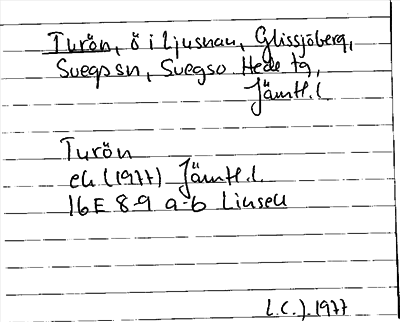 Turön, ö i Ljusnan, Glissjöberg,
Svegs sn, Svegs o Hede tg,
Jämtl. l
Turön
ek (1977) Jämtl. l.
16E 8-9 a-b Linsell
L.C.J. 1977